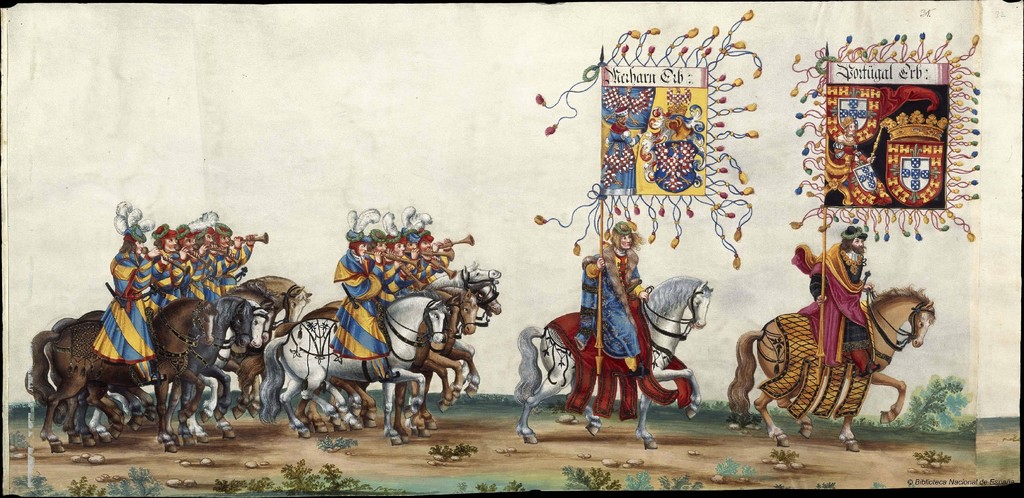 Merharn Erb:
Portugal Erb:
© Biblioteca Nacional de España